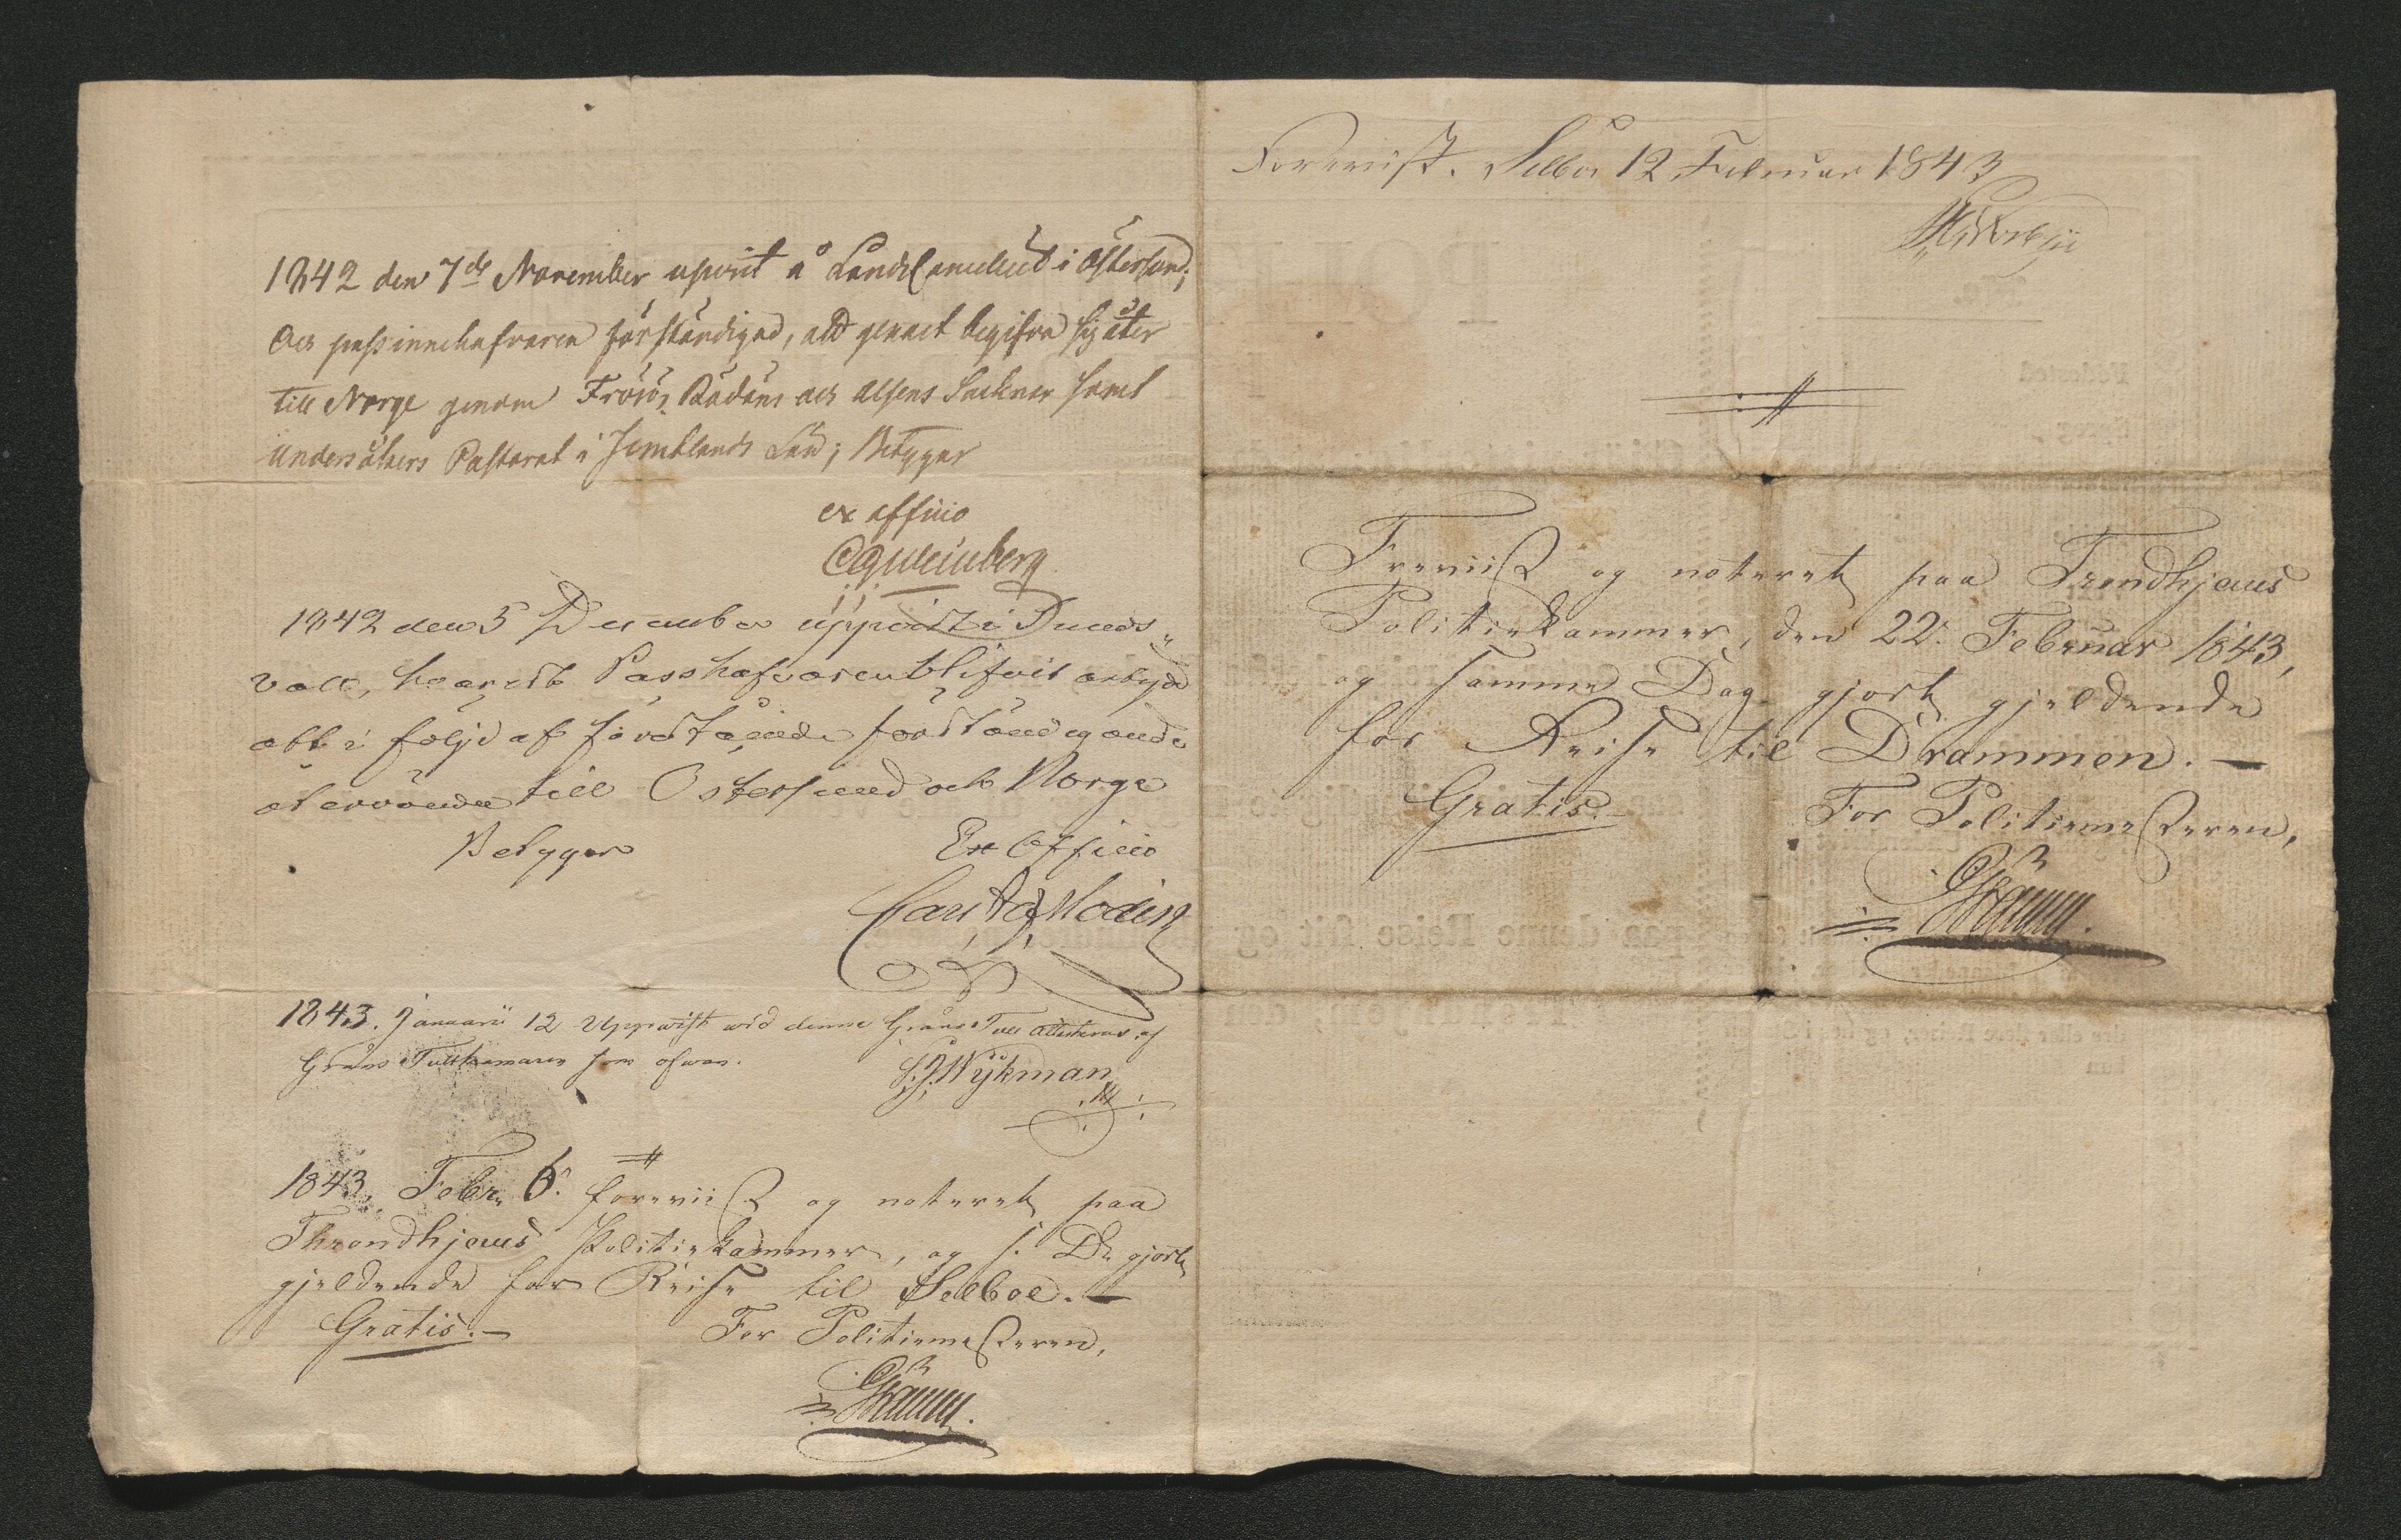 1842 den 7de November upvist å Landscancliet i Östersund;
och passinnehafvaren förständigad, att genast begifva sig åter
till Norge genom Frösö, Rödöns och Alsens Socknar samt
Undersåkers Pastorat i Jemtlands Län; Betygar
ex officio
1842 den 5 December uppvist i Sunds-
vall, hvarest Passhafvaren blifvit
att i följe af förestående förständigande
återvända till Östersund och Norge
Betygar Ex Officio
Carl Modin
1843. Januarii 12 Uppvist vid denne Gräns Tull attesteras af
Gräns Tull som ofvan.
Wykman
1843, Febr. 6. foreviist og noteret paa
Throndhjems Politiekammer, og s. D. gjort
gjeldende for Reise til Selboe. —
Gratis. — For Politiemesteren,
Forevist. Selbo 12 Februar 1843
Freviist og noteret paa Trondhjems
Politiekammer, den 22. Februar 1843,
og samme Dag gjort gjeldende
for Reise til Drammen. —
Gratis. — For Politiemesteren,